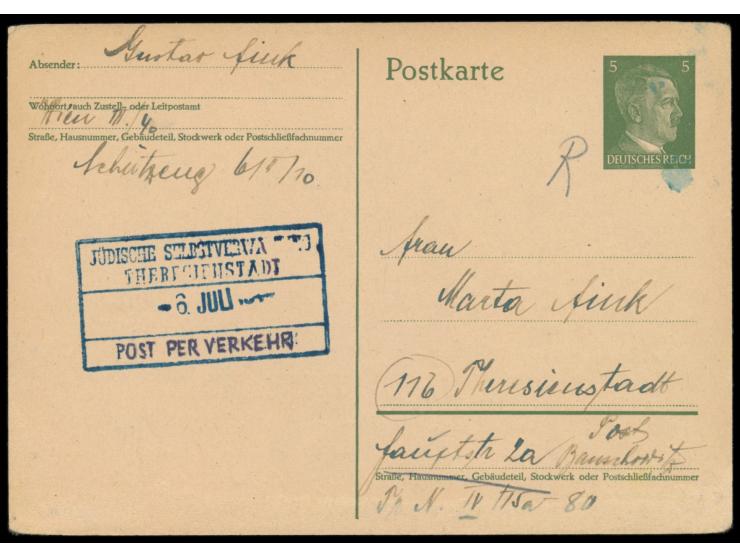 Absender: Gustav Fink
Wohnort, auch Zustell- oder Leitpostamt
Wien III/40
Straße, Hausnummer, Gebäudeteil, Stockwerk oder Postschließfachnummer
6 /10
JÜDISCHE SELBSTVERWA
THERESIENSTADT
6. JULI
POST PER VERKEHR
Postkarte
5 5
DEUTSCHES REICH
R
Frau
Marta Fink
(116) Theresienstadt
Hauptstr 2a Post
Bauschowitz
Straße, Hausnummer, Gebäudeteil, Stockwerk oder Postschließfachnummer
Tr N. IV 115a - 80